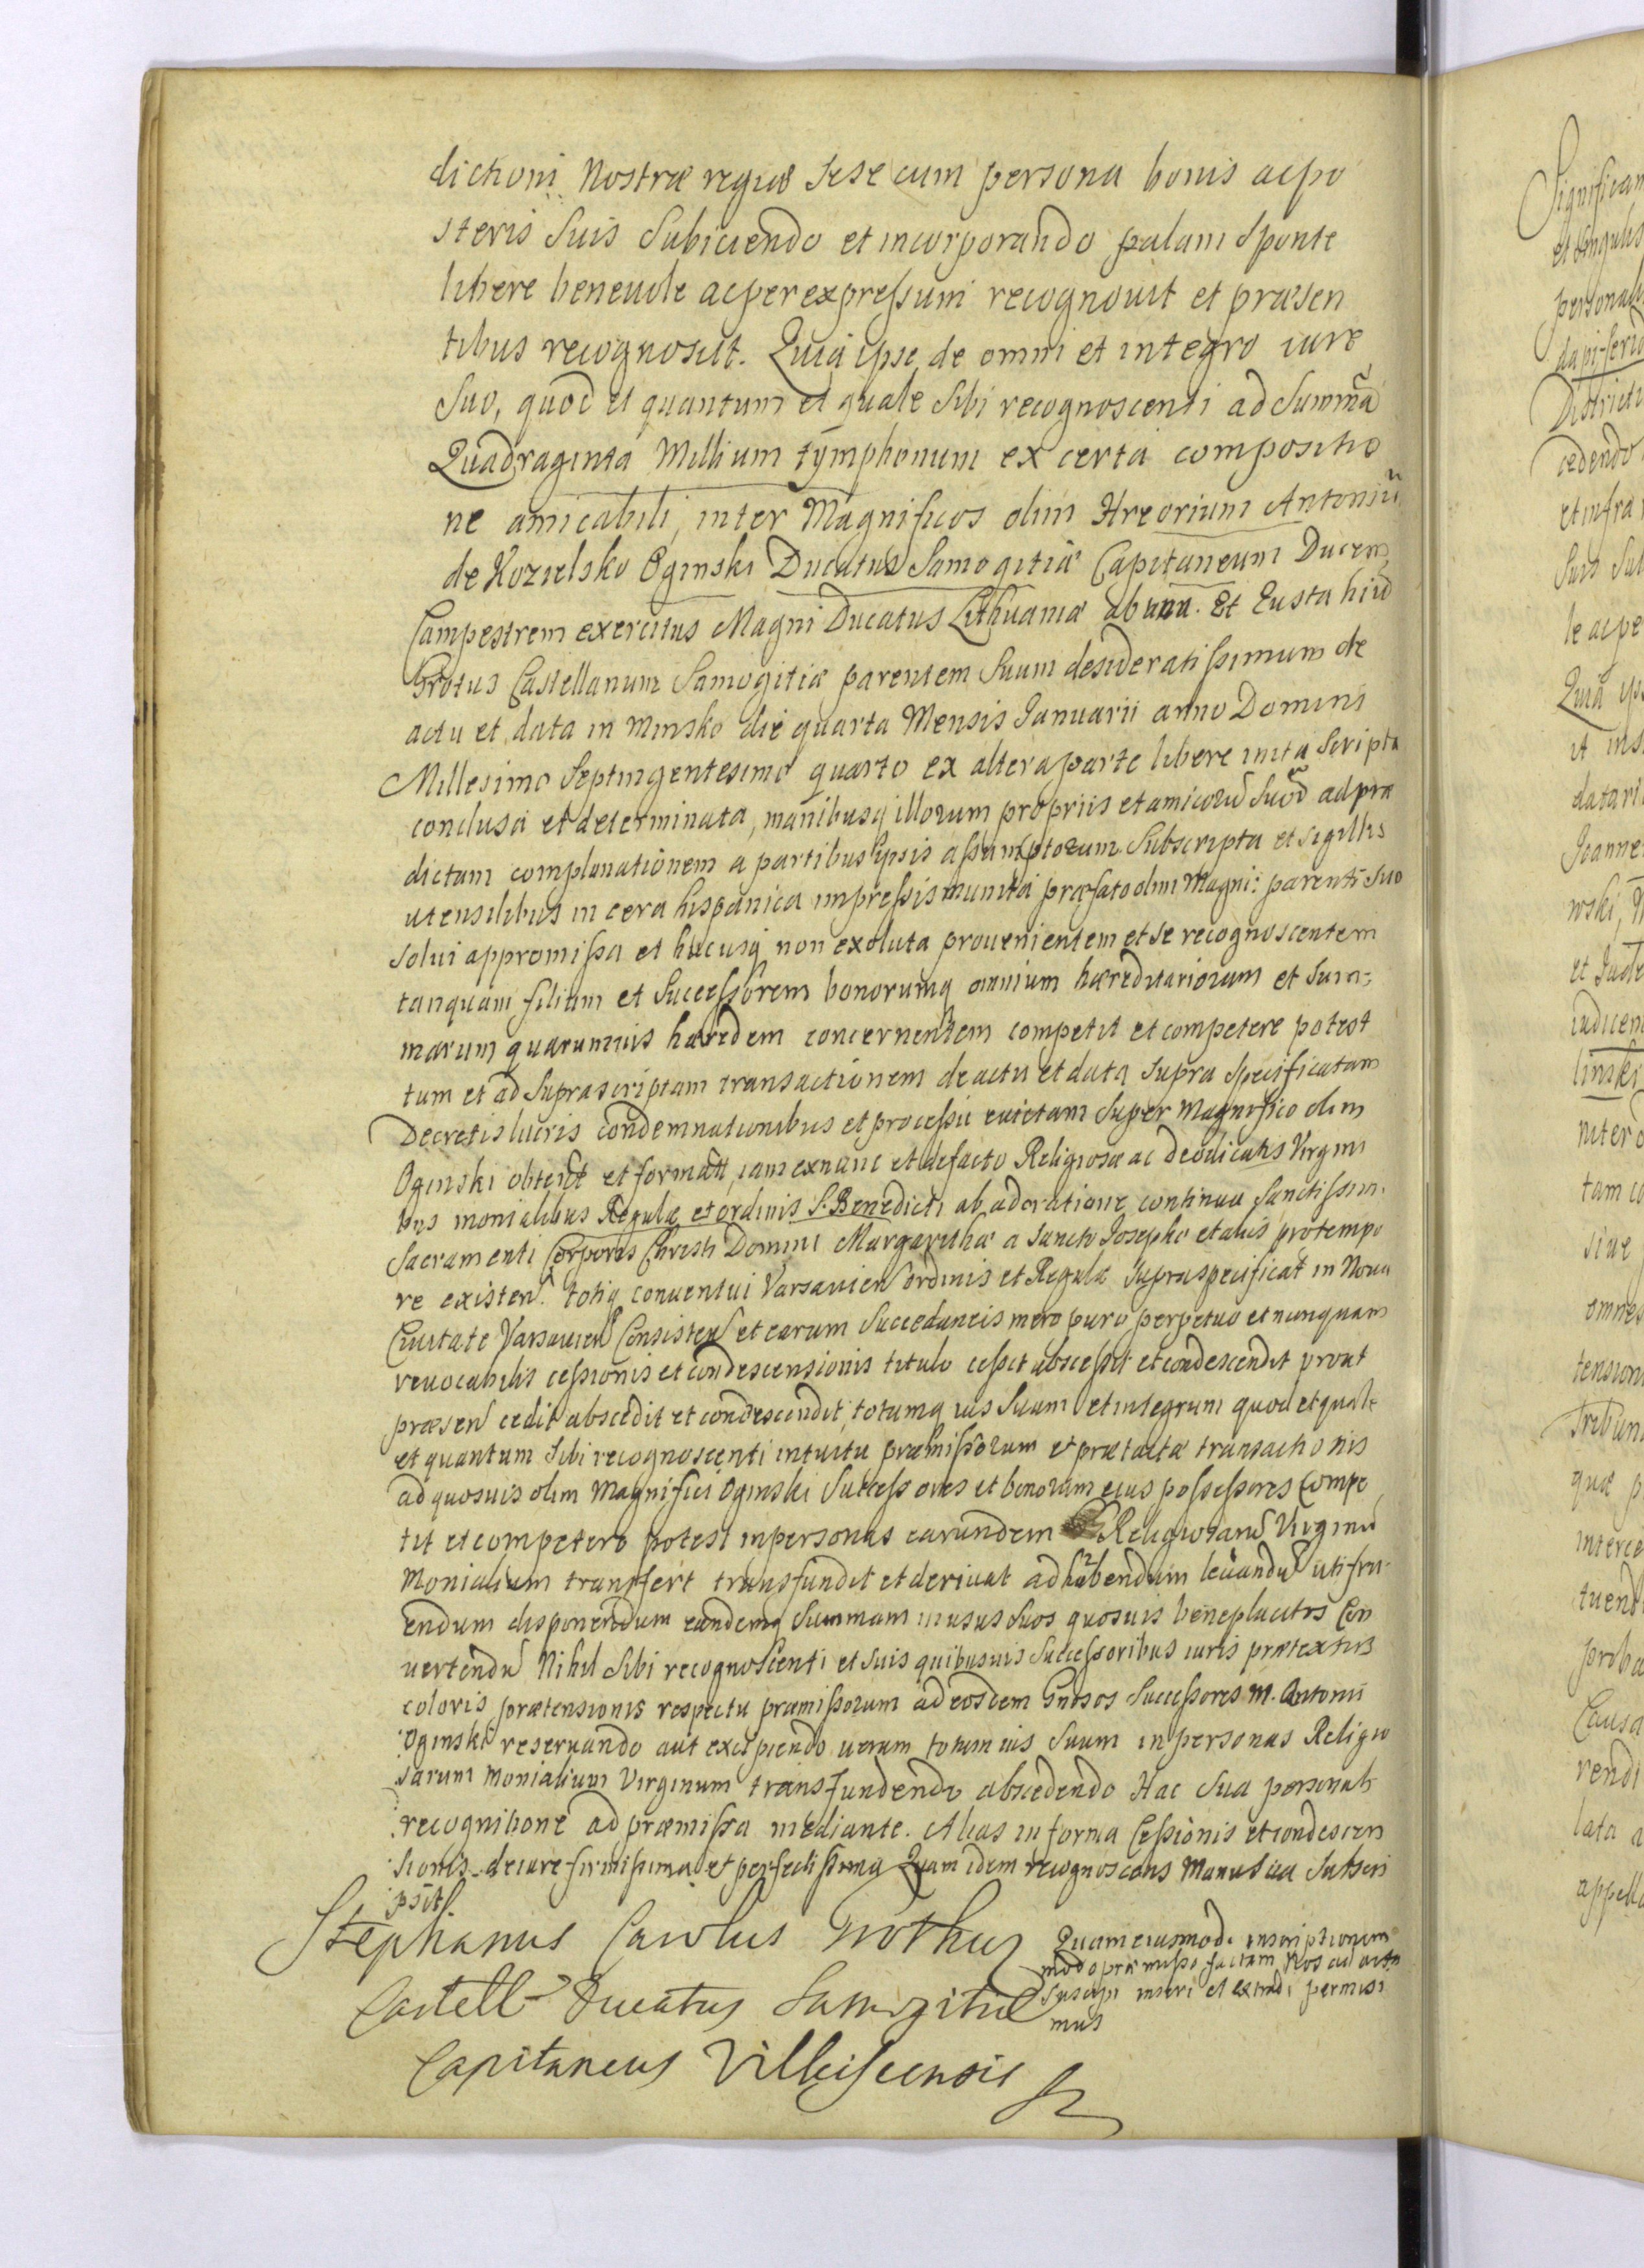 dictioni Nostræ regiæ sese cum persona bonis ac po
steris suis subiiciendo et incorporando palam sponte
libere beneuole ac per expressum recognouit et præsen
tibus recognoscit. Quia ipse de omni et integro iure
suo, quod et quantum et quale sibi recognoscenti ad summã
Quadraginta Millium tymphonum ex certa compositio
ne amicabili, inter Magnificos olim Hreorium Antoniũ
de Kozielsko Oginski Ducatus Samogitiæ Capitaneum Ducem
Campestrem exercitus Magni Ducatus Lithuaniæ ab una. Et Eustachiũ
Grotus Castellanum Samogitiæ parentem suum desideratissimum de
actu et data in Minsko die quarta Mensis Januarii anno Domini
Millesimo Septingentesimo quarto ex altera parte libere inita scripta
conclusa et determinata, manibusq illorum propriis et amicorũ suor̃ ad præ
dictam complanationem a partibus ipsis assumptorum subscripta et sigillis
utensilibus in cera hispanica impressis munita præfato olim Magni: parenti suo
solui appromissa et hucusq non exoluta prouenientem et se recognoscentem
tanquam filium et successorem bonorumq omnium hæreditariorum et sum=
marum quarumuis hæredem concernentem competit et competere potest
tum et ad suprascriptam transactionem de actu et data supra specificatam
Decretis lucris condemnationibus et processu euictam super Magnifico olim
Oginski obtent et formatt, iam ex nunc et de facto Religiosæ ac deodicatis Virgini
bus monialibus Regulæ et ordinis S. Benedicti ab adoratione continua Sanctissimi
Sacramenti Corporis Christi Domini Margarithæ a Sancto Josepho et aliis pro tempo
re existen. totiq conuentui Varsauien ordinis et Regulæ supraspecificat in Noua
Ciuitate Varsauien Consisten et earum Succedaneis mero puro perpetuo et nunquam
reuocabilis cessionis et condescensionis titulo cessit abscessit et condescendit prout
præsen cedit abscedit et condescendit totumq ius suum et integrum quod et quale
et quantum sibi recognoscenti intuitu præmissorum et prætactæ transactionis
ad quosuis olim Magnifici Oginski Successores et bonorum eius possessores Compe
tit et competere potest in personas earundem Religiosarũ Virginũ
Monialium transfert transfundit et deriuat ad habendum leuandũ utifru
endum disponendum eandemq summam in usus suos quosuis beneplacitos Con
uertendũ Nihil sibi recognoscenti et suis quibusuis successoribus iuris prætextus
coloris prætensionis respectu præmissorum ad eosdem Gnosos Successores M. Antonii
Oginski reseruando aut excipiendo uerum totum ius suum in personas Religio
sarum Monialium Virginum transfundendo abscedendo Hac sua personali
recognitione ad præmissa mediante. Alias in forma Cessionis et condescen
sionis de iure firmissima et perfectissima Quam idem recognoscens Manu sua subscri
psit.
Stephanus Carolus Grothus
Castell Ducatus Samogitiæ
Capitaneus Villeiscensis
Quam eiusmodi inscriptionem
modo præmisso factam Nos ad acta
suscipi inseri et extradi permisi
mus